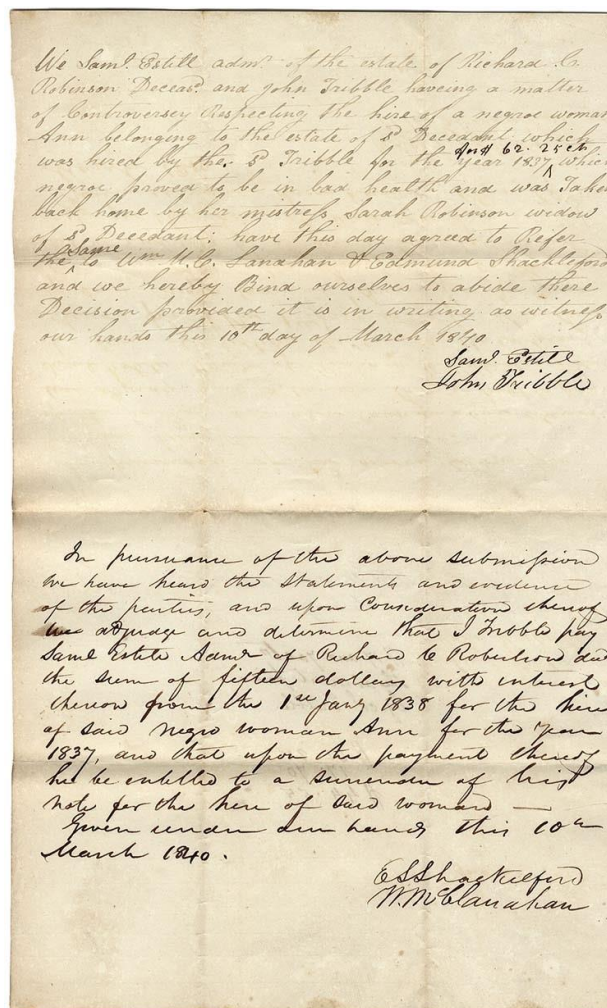 We Saml. Estill admr. of the estate of Richard C.
Robinson Deceasd. and John Tribble haveing a matter
of Controversey Respecting the hire of a negroe woman
Ann belonging to the estate of sd Decedant which
was hired by the sd Tribble for the year 1837 for $ 62.25 cts which
negroe proved to be in bad health and was Taken
back home by her mistress Sarah Robinson widow
of sd Decedant: have this day agreed to Refer
the Same to Wm M.C. Lanahan & Edmund Shackleford
and we hereby Bind ourselves to abide there
Decision provided it is in writing as witness
our hands this 10th day of March 1840
Saml. Estill
John Tribble
In pursuance of the above submission
we have heard the statements and evidence
of the parties, and upon Consideration thereof
we adjudge and determine that J Tribble pay
Saml Estele Admr of Richard C Robertson decd
the sum of fifteen dollars with interest
thereon from the 1st Jany 1838 for the hire
of said negro woman Ann for the year
1837, and that upon the payment thereof
he be entitled to a surrender of his
note for the hire of said woman —
Given under our hands this 10th
March 1840.
E S Shackelford
W. McClanahan